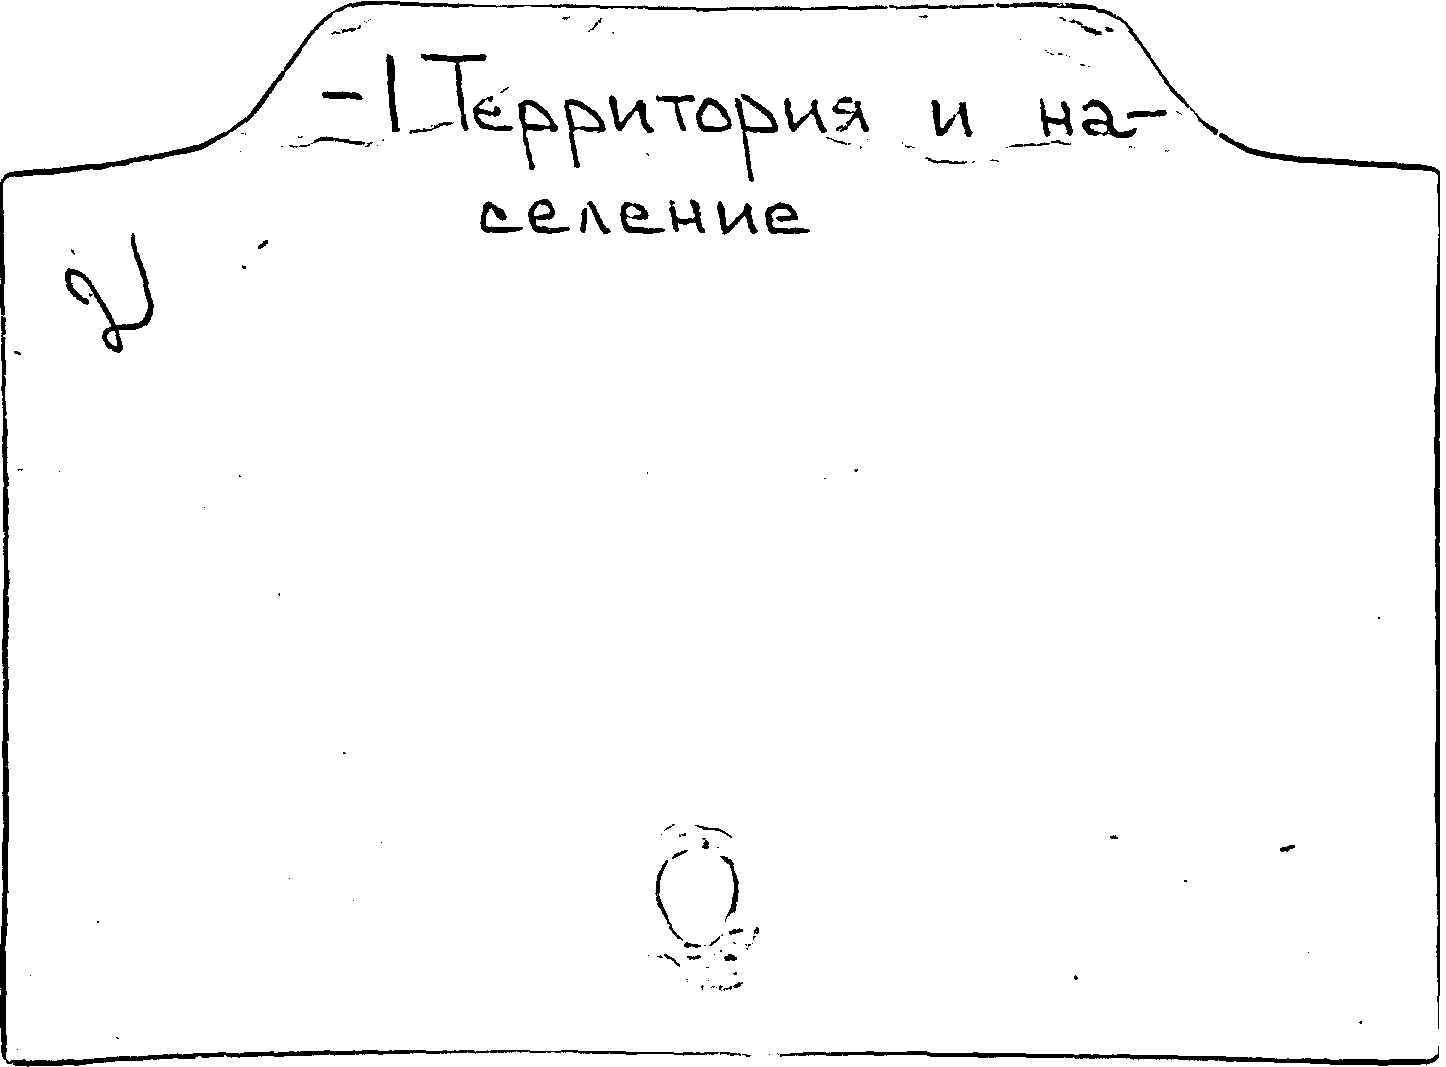 -1 Территория и на-
селение